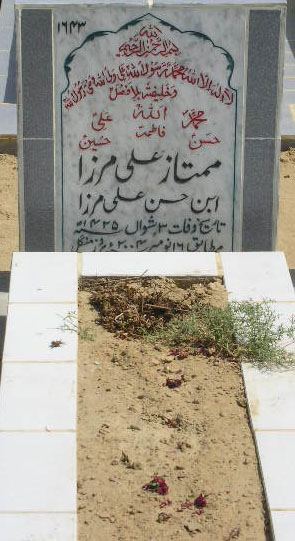 ۱۶۴۳
یا اللہ
بسم اللہ الرحمن الرحیم
لا الہ الا اللہ محمد رسول اللہ علی ولی اللہ
وخلیفتہ بلا فصل
محمد اللہ علی
حسن فاطمہ حسین
ممتاز علی مرزا
ابن حسن علی مرزا
تاریخ وفات ۳ شوال ۱۴۲۵ھ
مطابق ۱۶ نومبر ۲۰۰۴ء بروز منگل